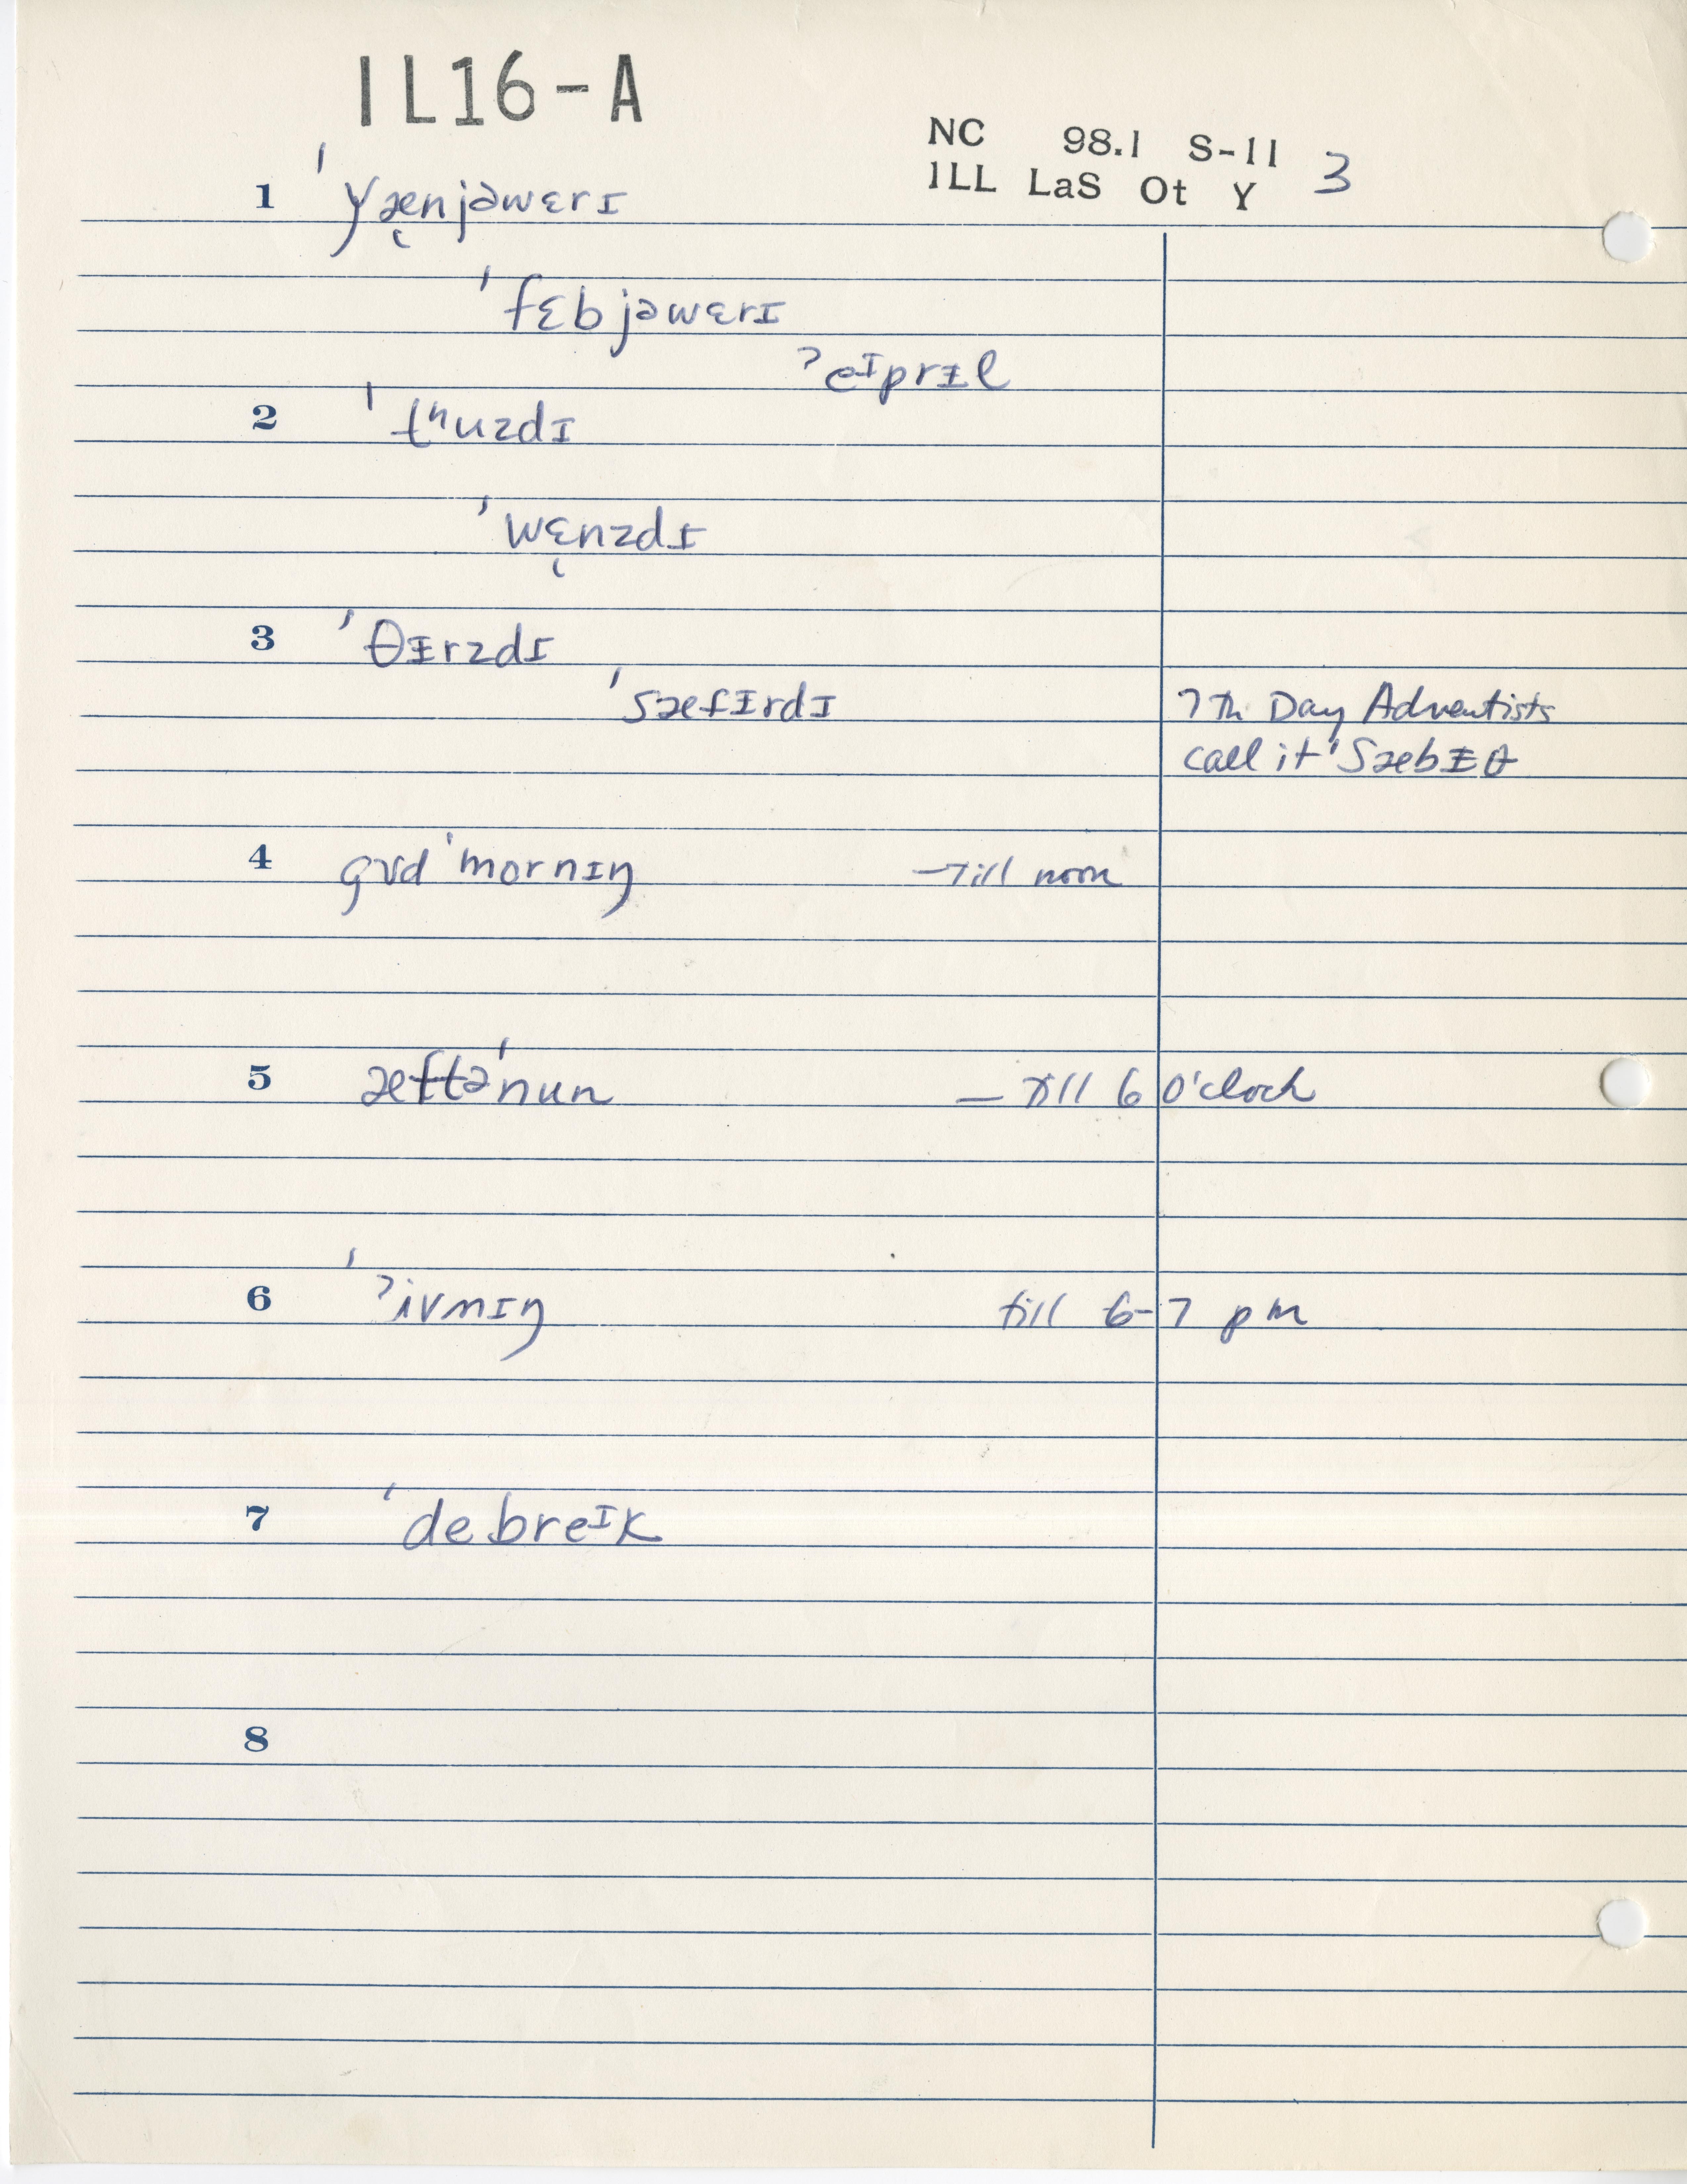 IL16-A
NC 98.1 S-11 3
ILL LaS Ot Y
1 ˈỹæ̨njəwɛrɪ
ˈfɛbjəwɛrɪ
ˀeᶦprᵻl
2 ˈtʰuzdɪ
ˈwɛ̨nzdɪ
3 ˈθᵻrzdɪ
ˈsæfᵻrdɪ 7th Day Adventists
call it ˈsæbᵻθ
4 gʊd ˈmornɪŋ – till noon
5 æftəˈnun – till 6 o'clock
6 ˈˀivnɪŋ till 6-7 pm
7 ˈdebreᶦk
8